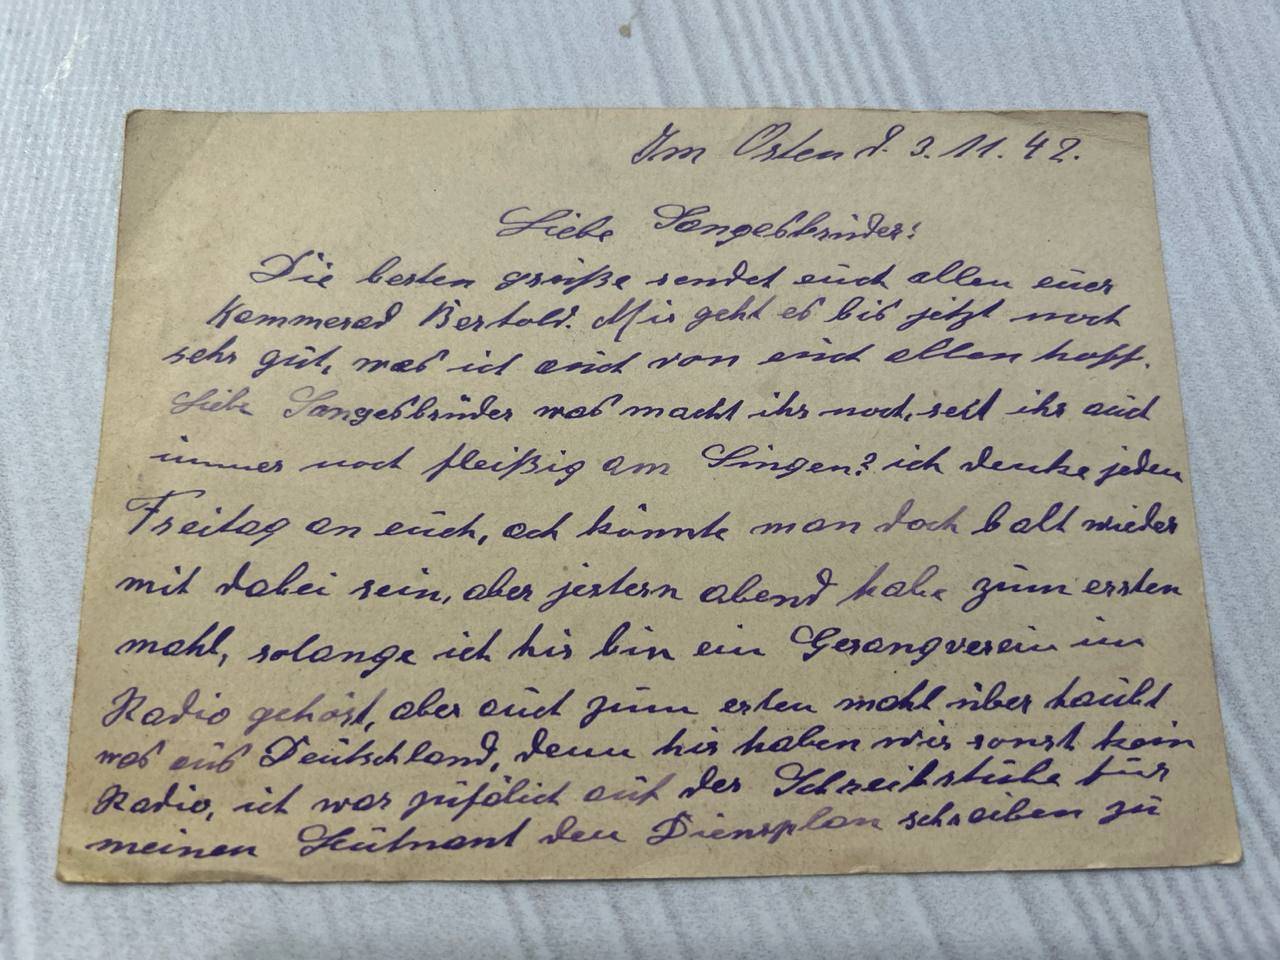 Im Osten d. 3.11.42.
Liebe Sangesbrüder!
Die besten grüße sendet euch allen euer
Kammerad Bertold. Mir geht es bis jetzt noch
sehr gut, was ich auch von euch allen hoff.
Liebe Sangesbrüder was macht ihr noch, seit ihr auch
immer noch fleißig am Singen? ich denke jeden
Freitag an euch, ach könnte man doch balt wieder
mit dabei sein, aber jestern abend habe zum ersten
mahl, solange ich hir bin ein Gesangverein im
Radio gehört, aber auch zum ersten mahl über haubt
was aus Deutschland, denn hir haben wir sonst kein
Radio, ich war zufälich auf der Schreibstube für
meinen Leutnant den Diensplan schreiben zu